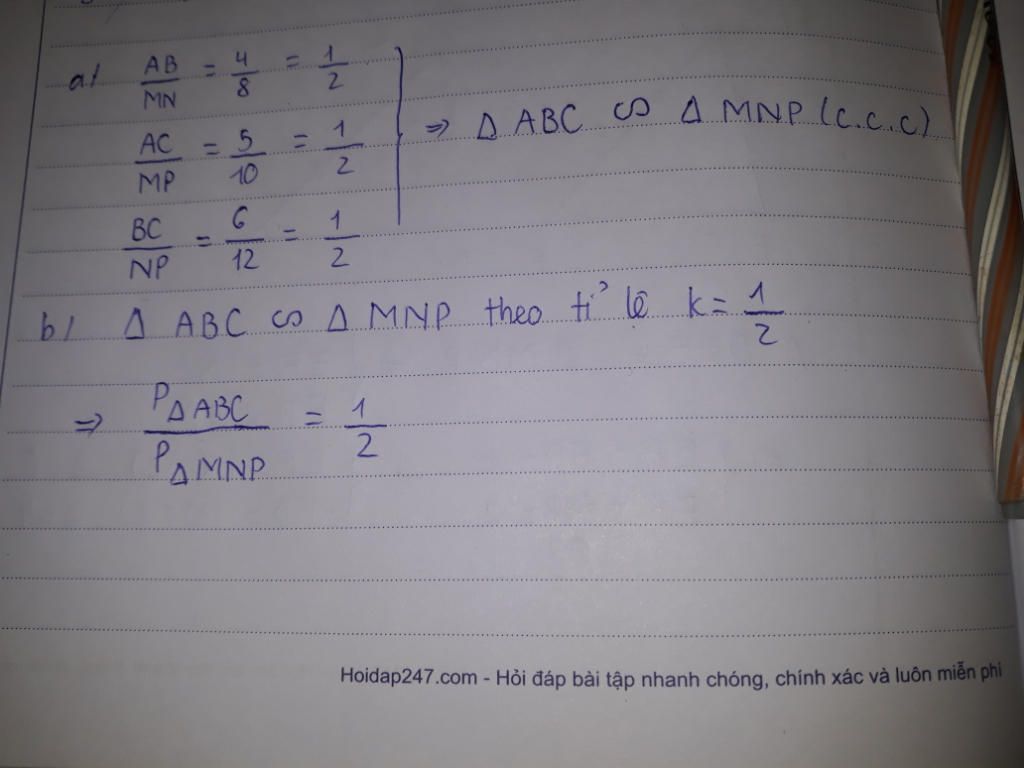 a/ AB/MN = 4/8 = 1/2
AC/MP = 5/10 = 1/2 } ⇒ Δ ABC ∽ Δ MNP (c.c.c)
BC/NP = 6/12 = 1/2
b/ Δ ABC ∽ Δ MNP theo tỉ lệ k = 1/2
⇒ P Δ ABC / P Δ MNP = 1/2
Hoidap247.com - Hỏi đáp bài tập nhanh chóng, chính xác và luôn miễn phí